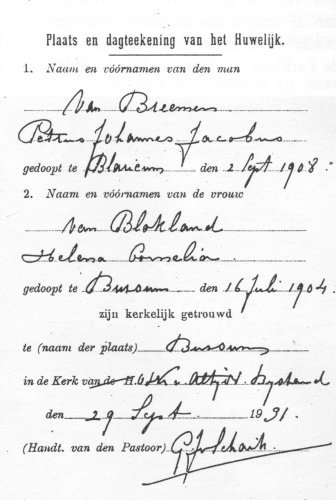 Plaats en dagteekening van het Huwelijk.
1. Naam en vóórnamen van den man
Van Breemen
Petrus Johannes Jacobus
gedoopt te Blaricum den 2 Sept 1908.
2. Naam en vóórnamen van de vrouw
van Blokland
Helena Cornelia
gedoopt te Bussum den 16 Juli 1904.
zijn kerkelijk getrouwd
te (naam der plaats) Bussum
in de Kerk van de O.L.Vr. v. Altijd. Bystand
den 29 Sept 1931.
(Handt. van den Pastoor)